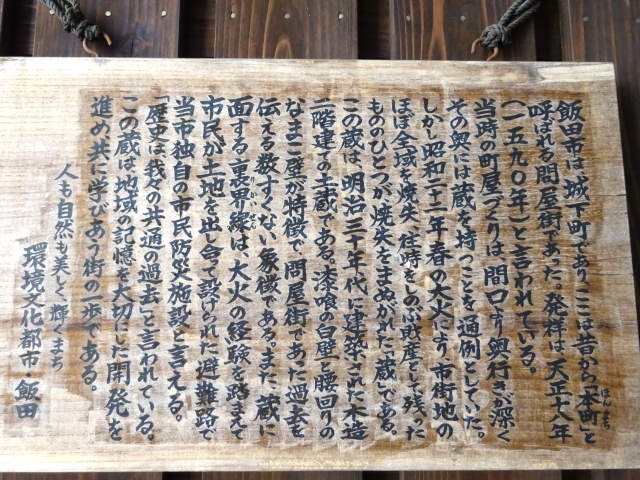 飯田市は、城下町であり、ここは昔から「本町」と
ほんまち
呼ばれる問屋街であった。発祥は、天正十八年
(一五九〇年)と言われている。
当時の町屋づくりは、間口より奥行きが深く
その奥には蔵を持つことを通例としていた。
しかし昭和二十二年春の大火により市街地の
ほぼ全域を焼失、往時をしのぶ財産として残った
もののひとつが焼失をまぬがれた「蔵」である。
この蔵は、明治三十年代に建築された木造
二階建ての土蔵である。漆喰の白壁と腰回りの
なまこ壁が特徴で、問屋街であった過去を
伝える数すくない象徴である。また、蔵に
面する裏界線は、大火の経験を踏まえて
りかいせん
市民が土地を出し合って設けられた避難路で
当市独自の市民防災施設と言える。
「歴史は、我々の共通の過去」と言われている。
この蔵は地域の記憶を大切にした開発を
進め共に学びあう街の一歩である。
人も自然も美しく、輝くまち
環境文化都市 飯田